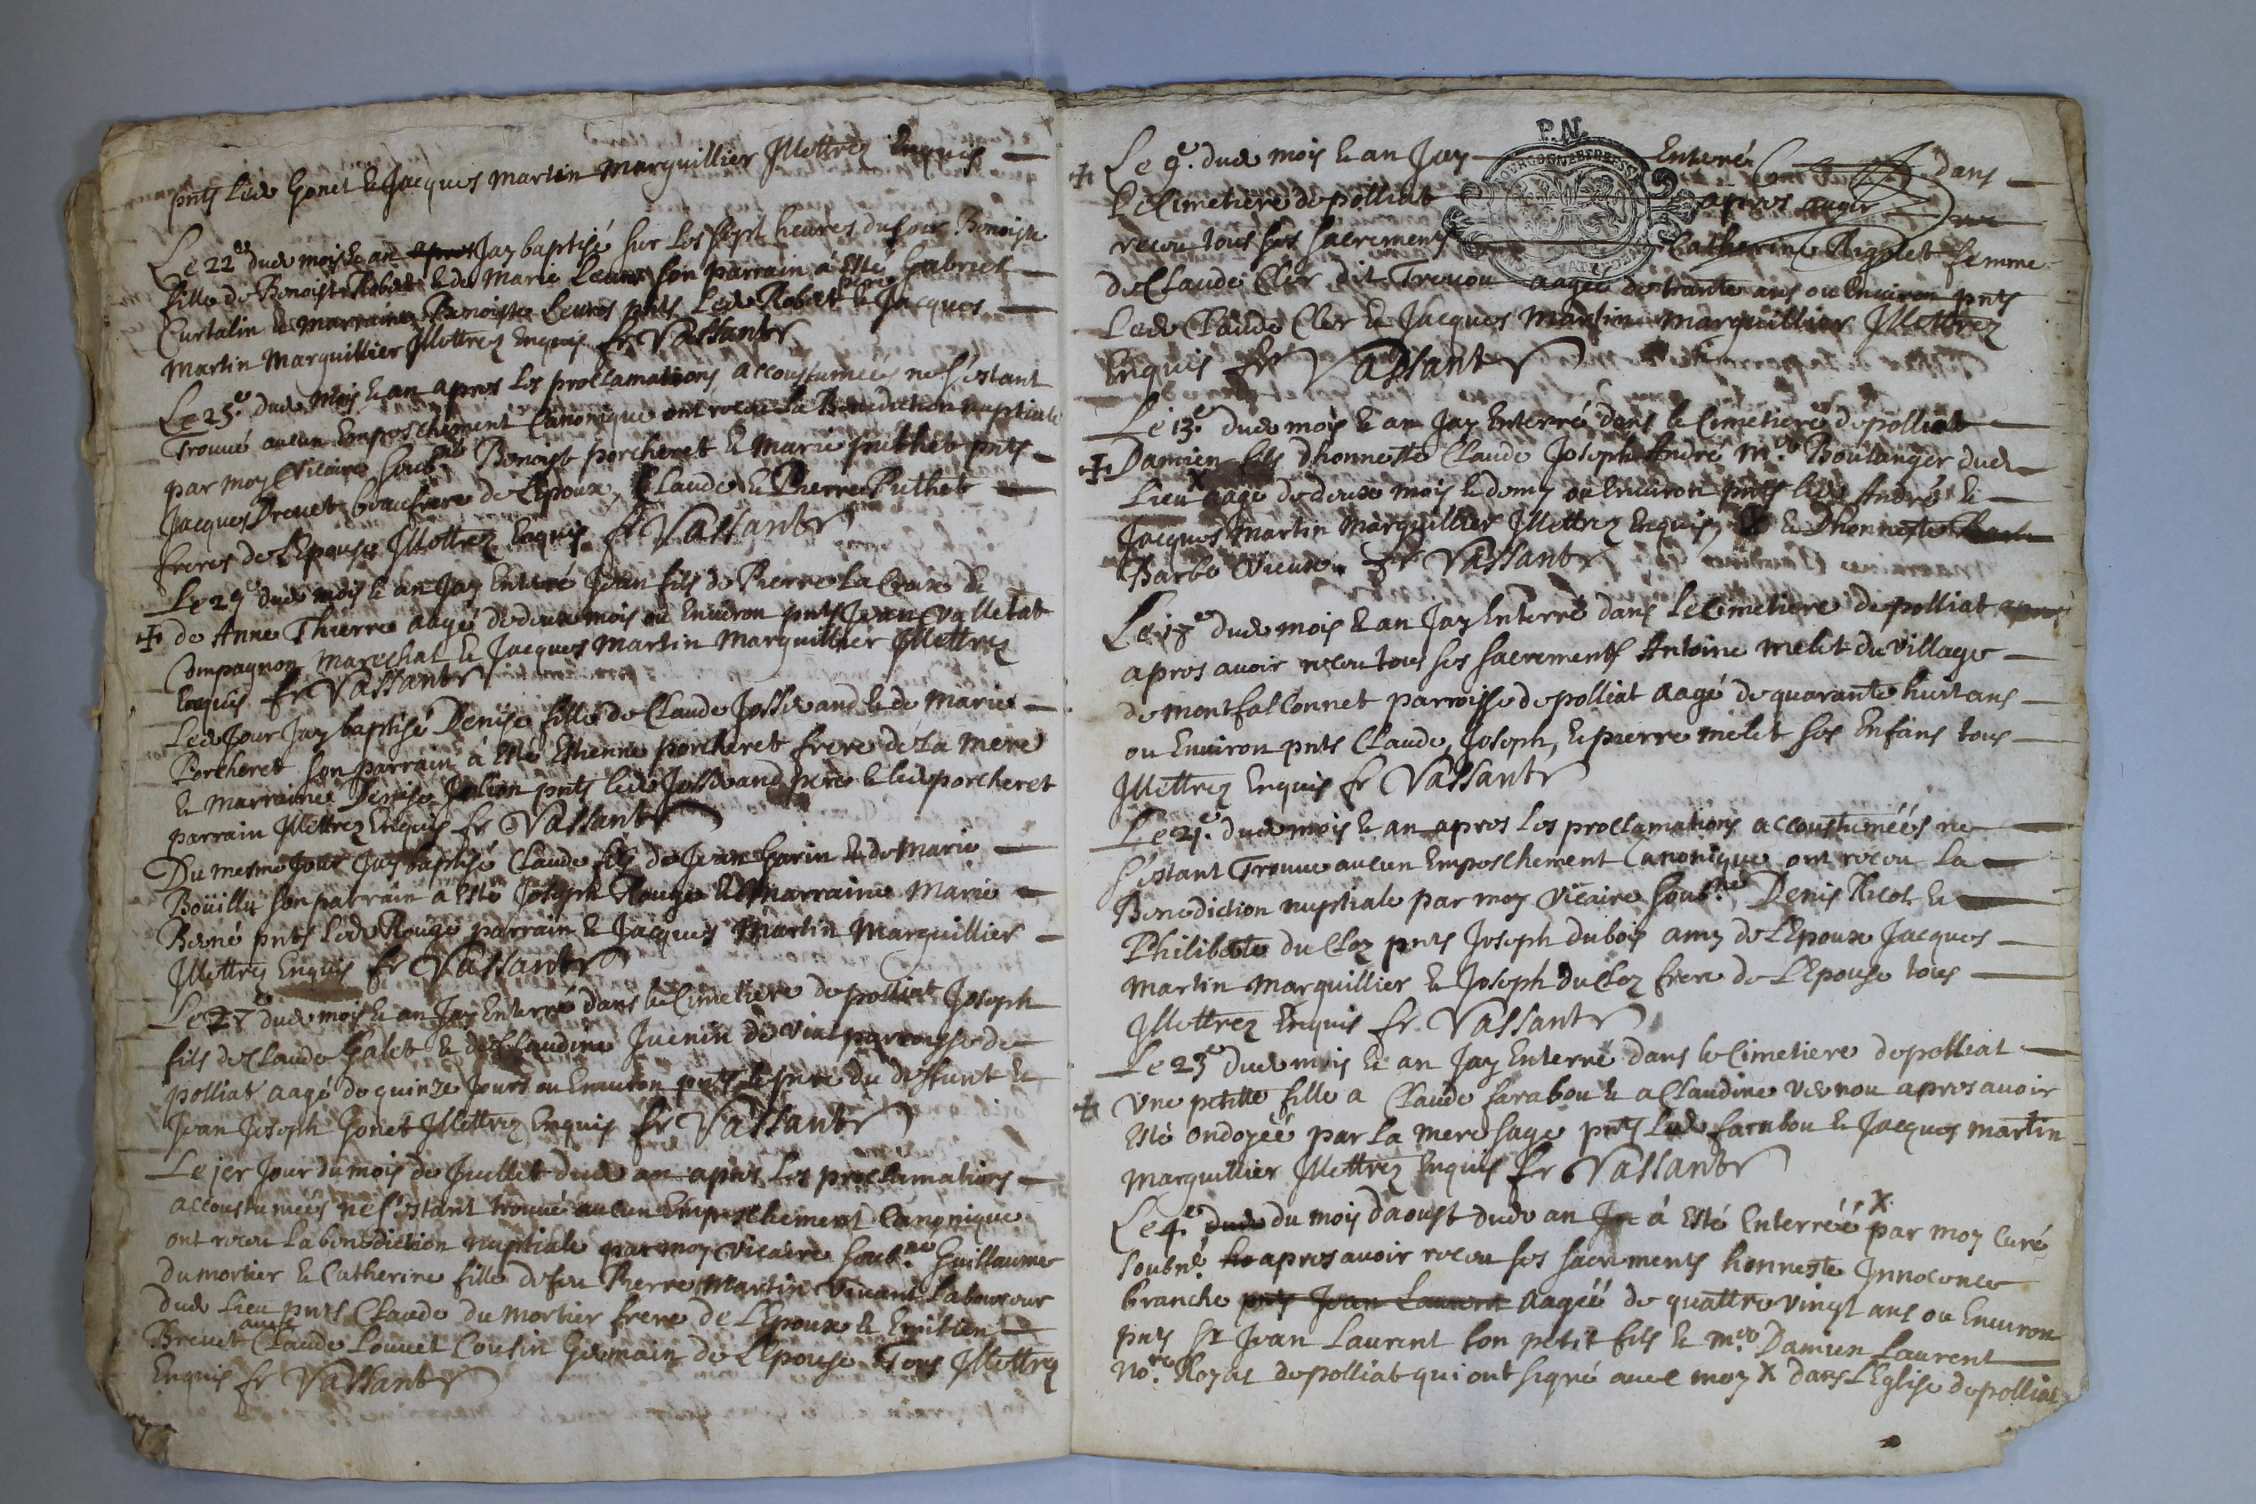 pnts led Gonet & Jacques Martin Marguillier Jllettrez Enquis
Le 22e dud mois & an Jay baptisé sur les sept heures du soir Benoiste
fille de Benoist Robet & de Marie Leures son parrain à Esté Gabriel
Curtalin & marraine Benoiste Leures pnts Led Robet pere & Jacques
Martin Marguillier Jllettrez Enquis fr Vassant
Le 25e dud mois & an apres les proclamations accoustumées ne sestant
Trouué aucun Empeschement Canonique ont receu La Benediction nuptiale
par moy Vicaire soubné Benoist porcheret & Marie puthet pnts
Jacques Breuet beaufrere de LEpoux, Claude & Pierre Puthet
freres de LEpouse Jllettrez Enquis fr Vassant
Le 29e dud mois & an Jay Enterré Jean fils de Pierre La Croix &
de Anne Thierre aagé de deux mois ou Enuiron pnts Jean Valletat
Compagnon Mareschal & Jacques Martin Marguillier Jllettrez
Enquis fr Vassant
Led Jour Jay baptisé Denise fille de Claude Josserand & de Marie
Porcheret son parrain à Esté Estienne porcheret frere de La mere
& marraine Denise Jolion pnts led Josserand pere & led porcheret
parrain Jllettrez Enquis fr Vassant
Du mesme Jour Jay baptisé Claude fils de Jean Garin & de Marie
Boüilly son parrain à Esté Joseph Rouge & Marraine Marie
Berné pnts Led Rouge parrain & Jacques Martin Marguillier
Jllettrez Enquis fr Vassant
Le dud mois & an Jay Enterré dans le Cimetiere de polliat Joseph
fils de Claude Galet & de Claudine Juenin de Vial parroisse de
polliat aagé de quinze Jours ou Enuiron pnts le pere du deffunt &
Jean Joseph Gonet Jllettrez Enquis fr Vassant
Le jer Jour du mois de Juillet dud an apres les proclamations
accoustumées ne sestant trouué aucun Empeschement Canonique
ont receu La benediction nuptiale par moy Vicaire soubné Guillaume
du mortier & Catherine fille de feu Pierre Martin Viuant Laboureur
dud Lieu pnts Claude du mortier frere de LEpoux &
Breuet auec Claude Louuet Cousin Germain de LEpouse Tous Jllettrez
Enquis fr Vassant
P.N.
BOURGOGNE BRESSE
Le 9e dud mois & an Jay Enteré dans
Le Cimetiere de polliat apres auoir
receu tous ses sacrements Catherine Rigolet femme
de Claude Cler dit Treuou aagée de trante ans ou Enuiron pnts
Led Claude Cler & Jacques Martin Marguillier Jllettrez
Enquis fr Vassant
Le 13e dud mois & an Jay Enterré dans le Cimetiere de polliat
Damien fils dhonneste Claude Joseph André me Boulanger dud
Lieu x aagé de deux mois & demy ou Enuiron pnts led André &
Jacques Martin Marguillier Jllettrez Enquis, x & Dhonneste
Barbe Vieux fr Vassant
Le 18e dud mois & an Jay Enterré dans Le Cimetiere de polliat
apres auoir receu tous ses sacrements Antoine melet du Village
de montfalconnet parroisse de polliat aagé de quarante huit ans
ou Enuiron pnts Claude, Joseph, & pierre melet ses Enfans tous
Jllettrez Enquis fr Vassant
Le 21e dud mois & an apres les proclamations accoustumées ne
sestant Trouué aucun Empeschement Canonique ont receu La
Benediction nuptiale par moy Vicaire soubné Denis Ricol &
Philiberte du Cloz pnts Joseph dubois amy de LEpoux Jacques
Martin Marguillier & Joseph du Cloz frere de LEpouse tous
Jllettrez Enquis fr Vassant
Le 23e dud mois & an Jay Enterré dans le Cimetiere de polliat
Vne petitte fille a Claude farabou & a Claudine Vernou apres auoir
Esté ondoyéé par La mere sage pnts Led farabou & Jacques martin
Marguillier Jllettrez Enquis fr Vassant
Le 4e du mois daoust dud an à Esté Enterréé x par moy Curé
soubné apres auoir receu ses sacrements honneste Jnnocence
branche pnts Jean Laurent aagéé de quattre vingt ans ou Enuiron
pnts sr Jean Laurent son petit fils & me Damien Laurent
Nore Royal de polliat qui ont signé auec moy x dans LEglise de polliat